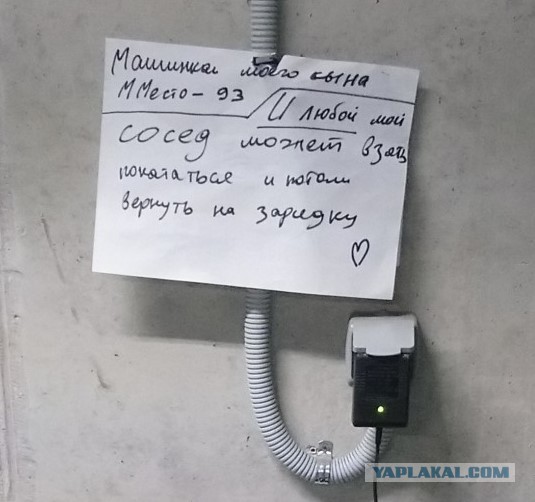 Машинка моего сына
ММесто - 93 / И любой мой
сосед может взять
покататься и потом
вернуть на зарядку
♡
YAPLAKAL.COM